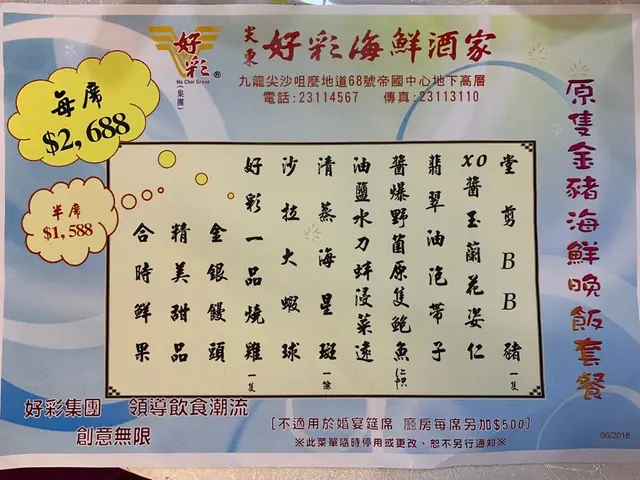 好彩
®
Ho Choi Group
(集團)
尖東 好彩海鮮酒家
九龍尖沙咀麼地道68號帝國中心地下高層
電話:23114567 傳真:23113110
每席
$2,688
半席
$1,588
原隻金豬海鮮晚飯套餐
堂剪BB豬一隻
XO醬玉蘭花姿仁
翡翠油泡帶子
醬爆野菌原隻鮑魚
油鹽水刀蚌浸菜遠
清蒸海星斑一條
沙拉大蝦球
好彩一品燒雞一隻
金銀饅頭
精美甜品
合時鮮果
好彩集團 領導飲食潮流
創意無限
[不適用於婚宴筵席 廳房每席另加$500]
※此菜單隨時停用或更改、恕不另行通知※
06/2018